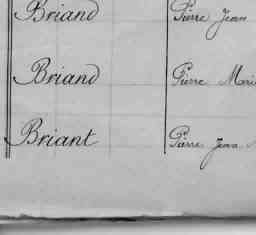 Briand Pierre Jean
Briand Pierre Mari
Briant Pierre Jean